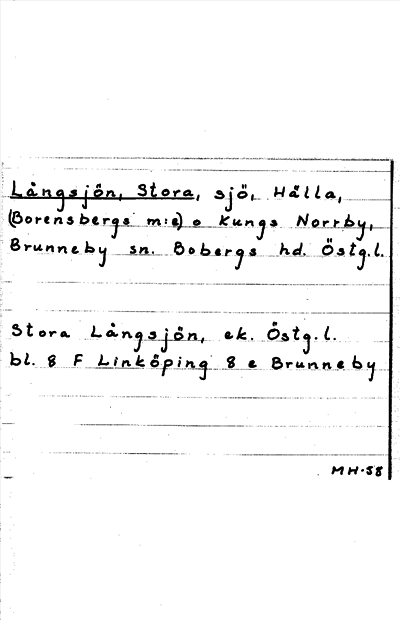 Långsjön, Stora, sjö, Hälla,
(Borensbergs m:e) o Kungs Norrby,
Brunneby sn. Bobergs hd. Östg.l.
Stora Långsjön, ek. Östg.l.
bl. 8 F Linköping 8 e Brunneby
MH-58